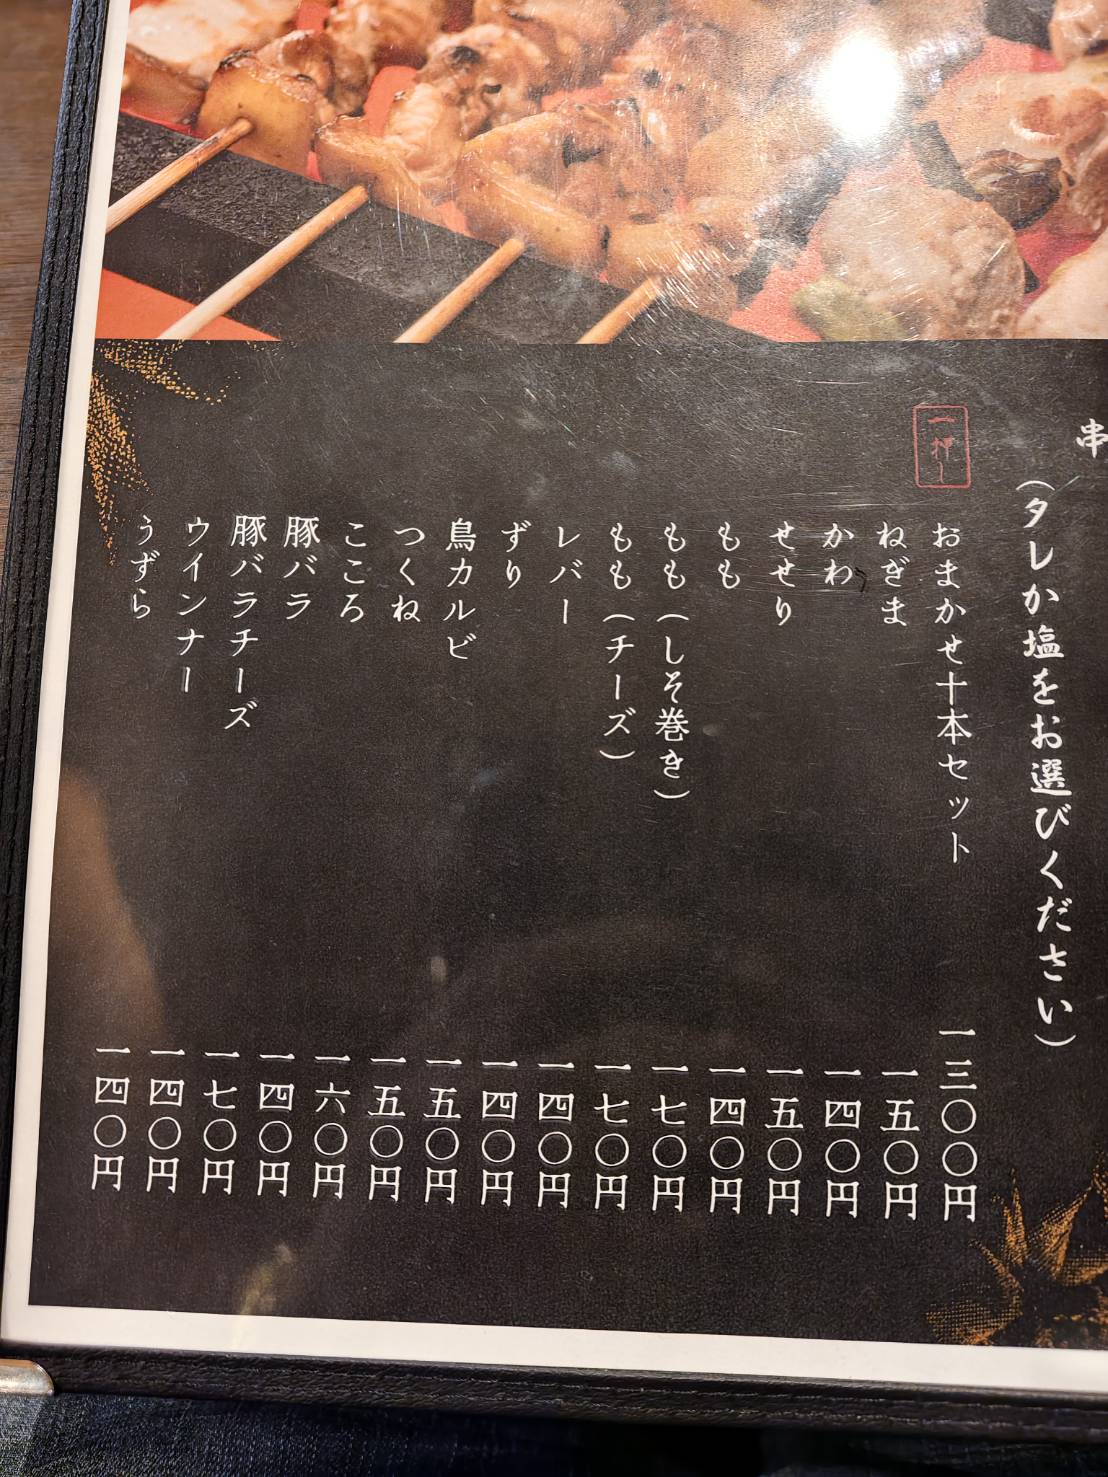 串
(タレか塩をお選びください)
一押し
おまかせ十本セット 一三〇〇円
ねぎま 一五〇円
かわ 一四〇円
せせり 一五〇円
もも 一四〇円
もも(しそ巻き) 一七〇円
もも(チーズ) 一七〇円
レバー 一四〇円
ずり 一四〇円
鳥カルビ 一五〇円
つくね 一五〇円
こころ 一六〇円
豚バラ 一四〇円
豚バラチーズ 一七〇円
ウインナー 一四〇円
うずら 一四〇円